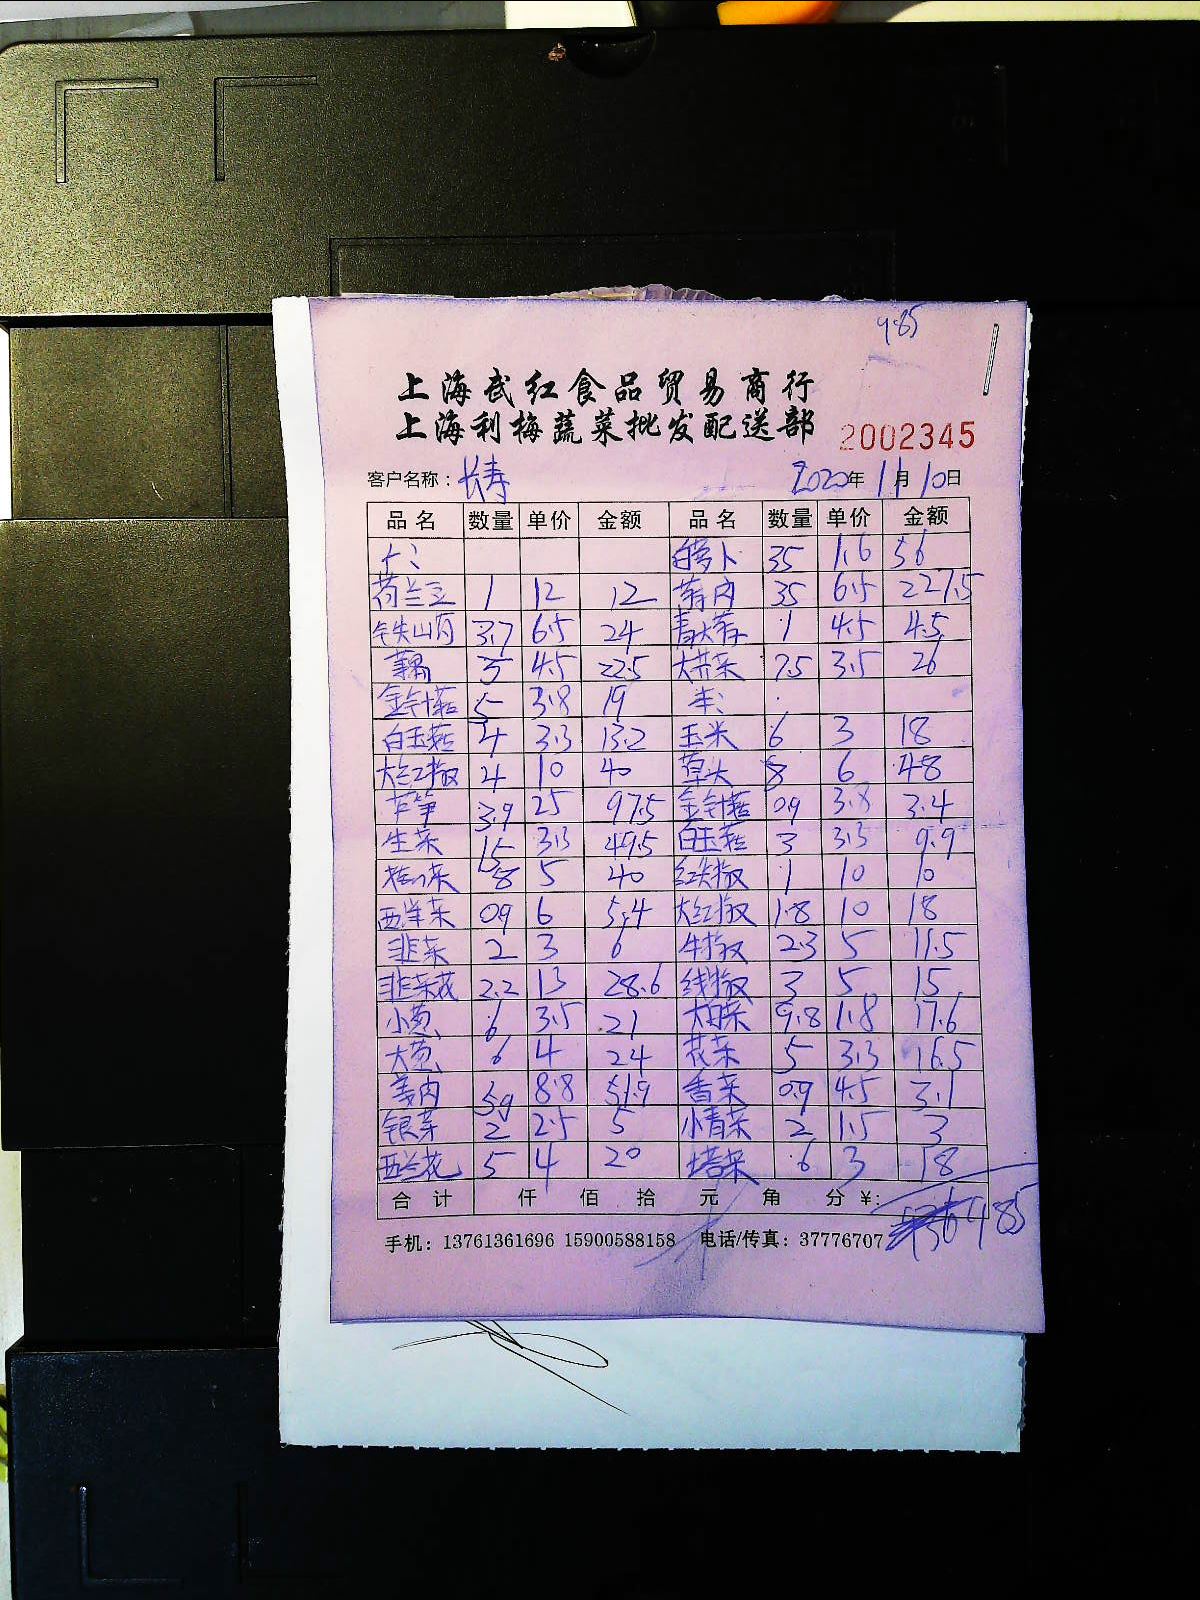 985
上海武红食品贸易商行
上海利梅蔬菜批发配送部
2002345
客户名称：长寿 2020年11月10日
品名 数量 单价 金额 品名 数量 单价 金额
白萝卜 35 1.6 56
荷兰豆 1 12 12 莴肉 35 6.5 227.5
铁山药 3.7 6.5 24 青大蒜 1 4.5 4.5
藕 5 4.5 22.5 大芹菜 7.5 3.5 26
金针菇 5 3.8 19
白玉菇 4 3.3 13.2 玉米 6 3 18
大红椒 4 10 40 草头 8 6 48
芦笋 3.9 25 97.5 金针菇 0.9 3.8 3.4
生菜 15 3.3 49.5 白玉菇 3 3.3 9.9
8 5 40 红尖椒 1 10 10
西洋菜 0.9 6 5.4 大红椒 1.8 10 18
韭菜 2 3 6 牛椒 2.3 5 11.5
韭菜花 2.2 13 28.6 线椒 3 5 15
小葱 6 3.5 21 大白菜 9.8 1.8 17.6
大葱 6 4 24 花菜 5 3.3 16.5
姜肉 5.9 8.8 51.9 香菜 0.9 4.5 3.1
银芽 2 2.5 5 小青菜 2 1.5 3
西兰花 5 4 20 塔菜 6 3 18
合计 仟 佰 拾 元 角 分 ¥: 985
手机：13761361696 15900588158 电话/传真：37776707